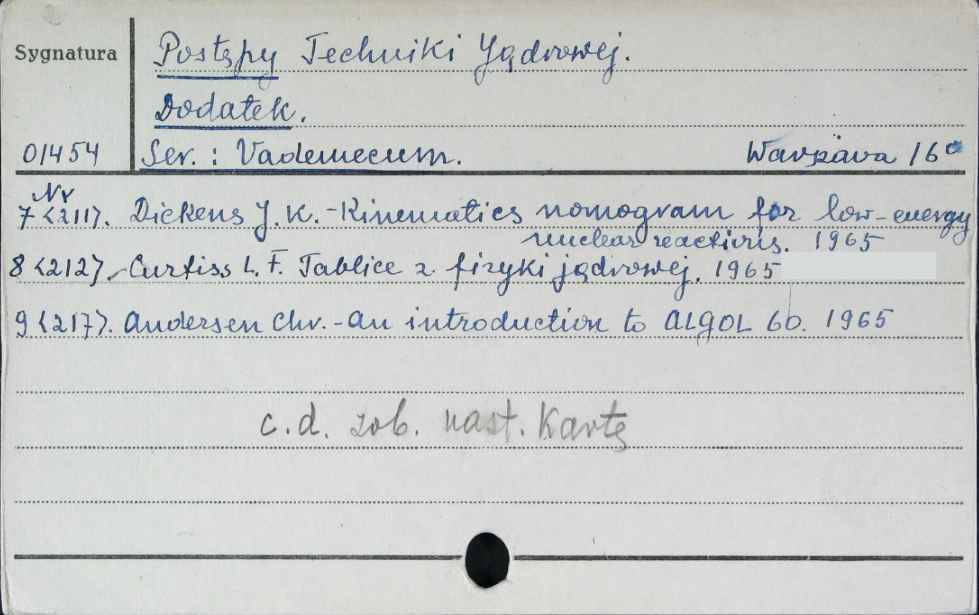 Sygnatura Postępy Techniki Jądrowej.
Dodatek.
01454 Ser.: Vademecum. Warszawa 16°
Nr
7 <211>. Dickens J. K. - Kinematics nomogram for low-energy
nuclear reactions. 1965
8 <212>. Curtiss L. F. Tablice z fizyki jądrowej. 1965
9 <217>. Andersen Chr. - An introduction to ALGOL 60. 1965
c.d. zob. nast. Kartę